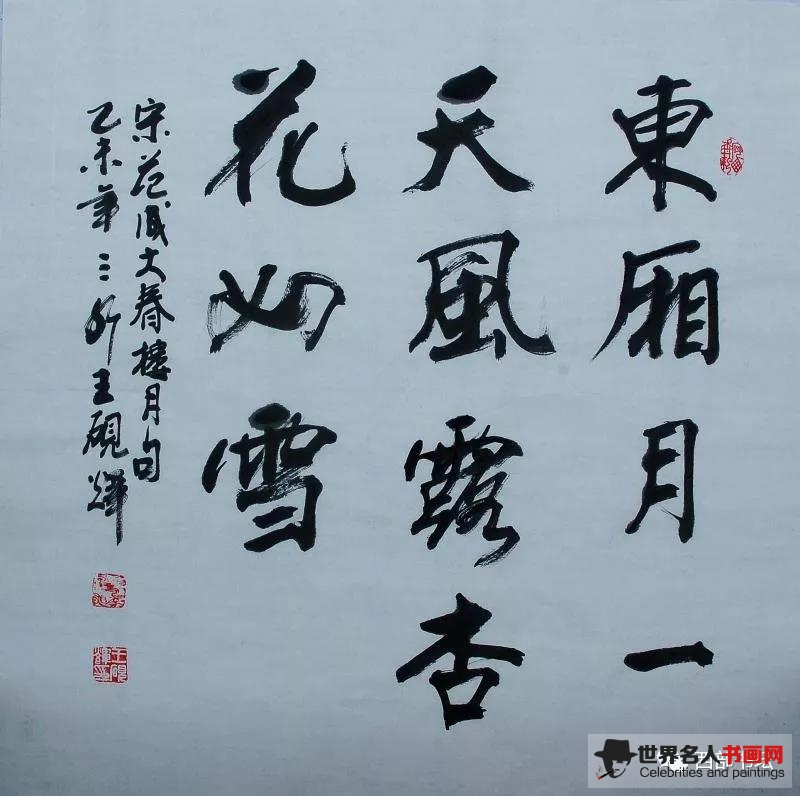 東厢月一
天風露杏
花如雪
宋范成大春樓月句
乙未年三 王硯輝
世界名人书画网
Celebrities and paintings